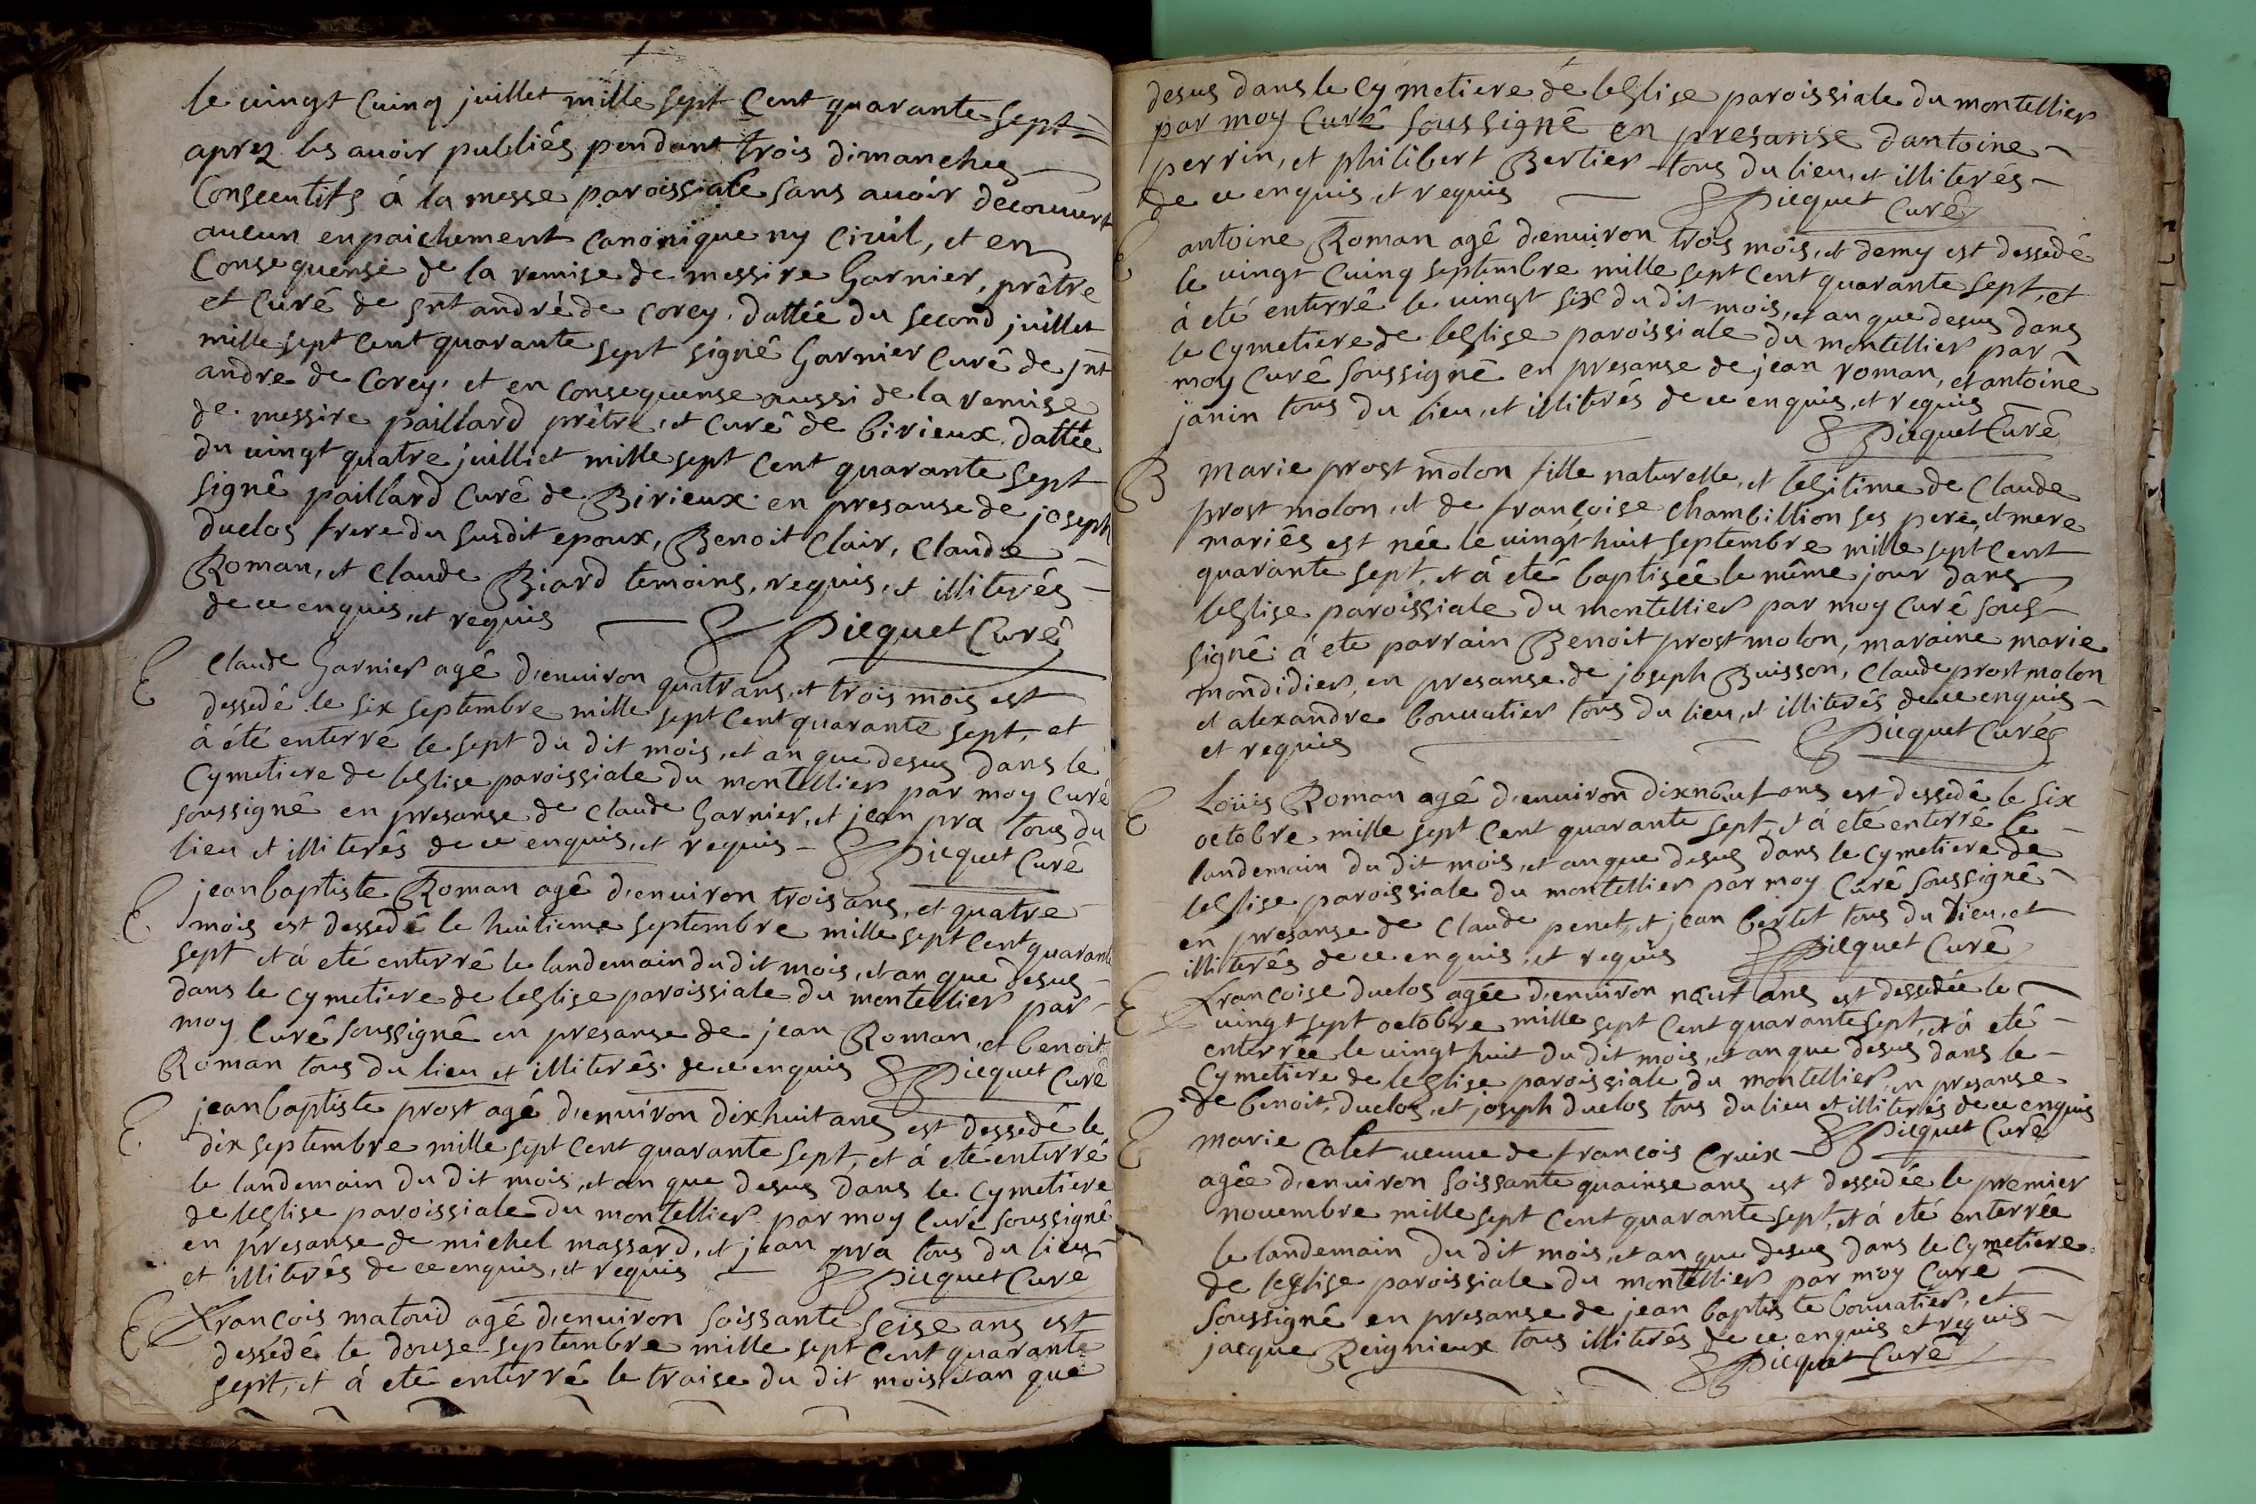 le vingt cuinq juillet mille sept cent quarante sept
aprez les avoir publiés pendant trois dimanches
consecutifs á la messe paroissiale sans avoir decouvert
aucun enpaichement canonique ny civil, et en
consequense de la remise de messire Garnier, prêtre
et curé de snt andré de corcy. dattée du second juillet
mille sept cent quarante sept signé Garnier curé de snt
andre de corcy, et en consequense aussi de la remise
de messire paillard prêtre, et curé de birieux dattée
du vingt quatre juilliet mille sept cent quarante sept
signé paillard curé de Birieux. en presanse de joseph
duclos frere du susdit epoux, Benoit Clair, Claude
Roman, et claude Biard temoins, requis, et illiterés
de ce enquis, et requis Picquet Curé
E claude Garnier agé d'environ quatr ans, et trois mois est
dessedé le six septembre mille sept cent quarante sept, et
á été enterré le sept du dit mois, et an que desus dans le
cymetiere de leglise paroissiale du montellier par moy curé
soussigné en presanse de claude Garnier, et jean pra tous du
lieu et illiterés de ce enquis, et requis Picquet Curé
E jean baptiste Roman agé d'environ trois ans, et quatre
mois est dessedé le huitieme septembre mille sept cent quarante
sept et á eté enterré le landemain du dit mois, et an que desus
dans le cymetiere de leglise paroissiale du montellier par
moy curé soussigné en presanse de jean Roman, et benoit
Roman tous du lieu et illiterés de ce enquis Picquet Curé
E jean baptiste prost agé d'environ dixhuit ans est dessedé le
dix septembre mille sept cent quarante sept, et á eté enterré
le landemain du dit mois, et an que desus dans le cymetiere
de leglise paroissiale du montellier par moy curé soussigné
en presanse de michel massard, et jean pra tous du lieu
et illiterés de ce enquis, et requis Picquet Curé
E François matoud agé d'environ soissante seise ans est
dessédé le douse septembre mille sept cent quarante
sept, et á eté enterré le traise du dit mois et an que
desus dans le cymetiere de leglise paroissiale du montellier
par moy curé soussigné en presanse d'antoine
perrin, et philibert Bertier tous du lieu, et illiterés
de ce enquis, et requis Picquet curé
E antoine Roman agé d'environ trois mois, et demy est dessedé
le vingt cuinq septembre mille sept cent quarante sept, et
á eté enterré le vingt six du dit mois, et an que desus dans
le cymetiere de leglise paroissiale du montellier par
moy curé soussigné en presanse de jean roman, et antoine
janin tous du lieu, et illiterés de ce enquis, et requis
Picquet Curé
B marie prost molon fille naturelle, et legitime de Claude
prost molon, et de françoise Chambillion ses pere, et mere
mariés est née le vingt huit septembre mille sept cent
quarante sept, et á eté baptisée le même jour dans
leglise paroissiale du montellier par moy curé sous
signé. á ete parrain Benoit prost molon, maraine marie
mondidier, en presanse de joseph Buisson, Claude prost molon
et alexandre bouvatier tous du lieu, et illiterés de ce enquis
et requis Picquet Curé
E Loüis Roman agé d'environ dixneuf ans est dessedé le six
octobre mille sept cent quarante sept, et á eté enterré le
landemain du dit mois, et an que desus dans le cymetiere de
leglise paroissiale du montellier par moy curé soussigné
en presanse de claude penet, et jean bertet tous du lieu, et
illiterés de ce enquis, et requis Picquet Curé
E Françoise duclos agée d'environ neuf ans est dessedée le
vingt sept octobre mille sept cent quarante sept, et á eté
enterrée le vingt huit du dit mois, et an que desus dans le
cymetiere de leglise paroissiale du montellier, en presanse
de benoit, duclos, et joseph duclos tous du lieu et illiterés de ce enquis
Picquet Curé
E marie Calet veuve de françois Cruix
agée d'environ soissante quainse ans est dessedée le premier
novembre mille sept cent quarante sept, et á eté enterrée
le landemain du dit mois, et an que desus dans le cymetiere
de leglise paroissiale du montellier par moy Curé
soussigné en presanse de jean baptiste bouvatier, et
jacque Reignieux tous illiterés de ce enquis et requis
Picquet Curé